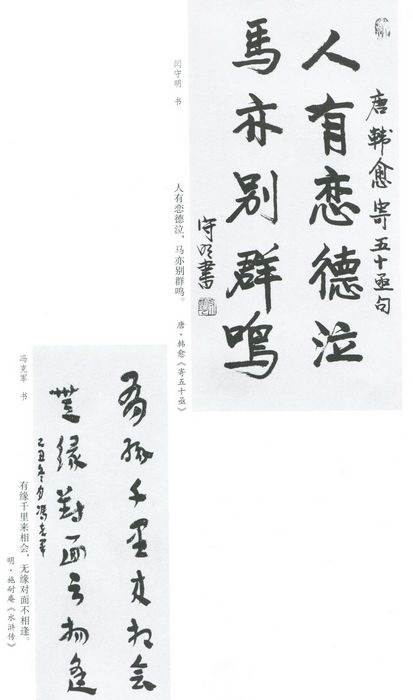 唐韩愈寄五十丞句
人有恋德泣
馬亦别群鳴
守明書
闫守明 书
人有恋德泣，马亦别群鸣。
唐·韩愈《寄五十丞》
有缘千里来相会
無緣對面不相逢
己丑冬月冯克军
冯克军 书
有缘千里来相会，无缘对面不相逢。
明·施耐庵《水浒传》